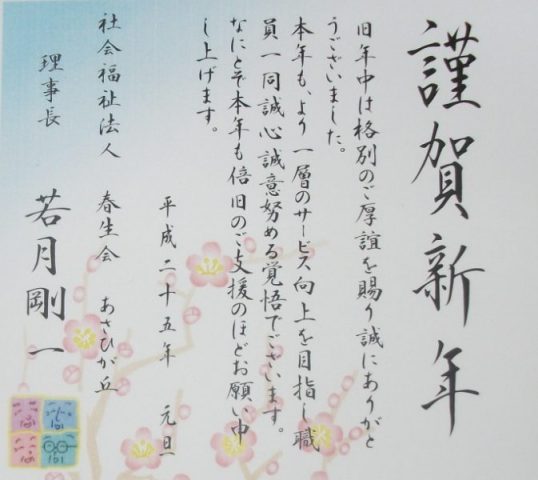 謹賀新年
旧年中は格別のご厚誼を賜り誠にありがと
うございました。
本年も、より一層のサービス向上を目指し職
員一同誠心誠意努める覚悟でございます。
なにとぞ本年も倍旧のご支援のほどお願い申
し上げます。
平成二十五年 元旦
社会福祉法人 春生会 あさひが丘
理事長 若月剛一